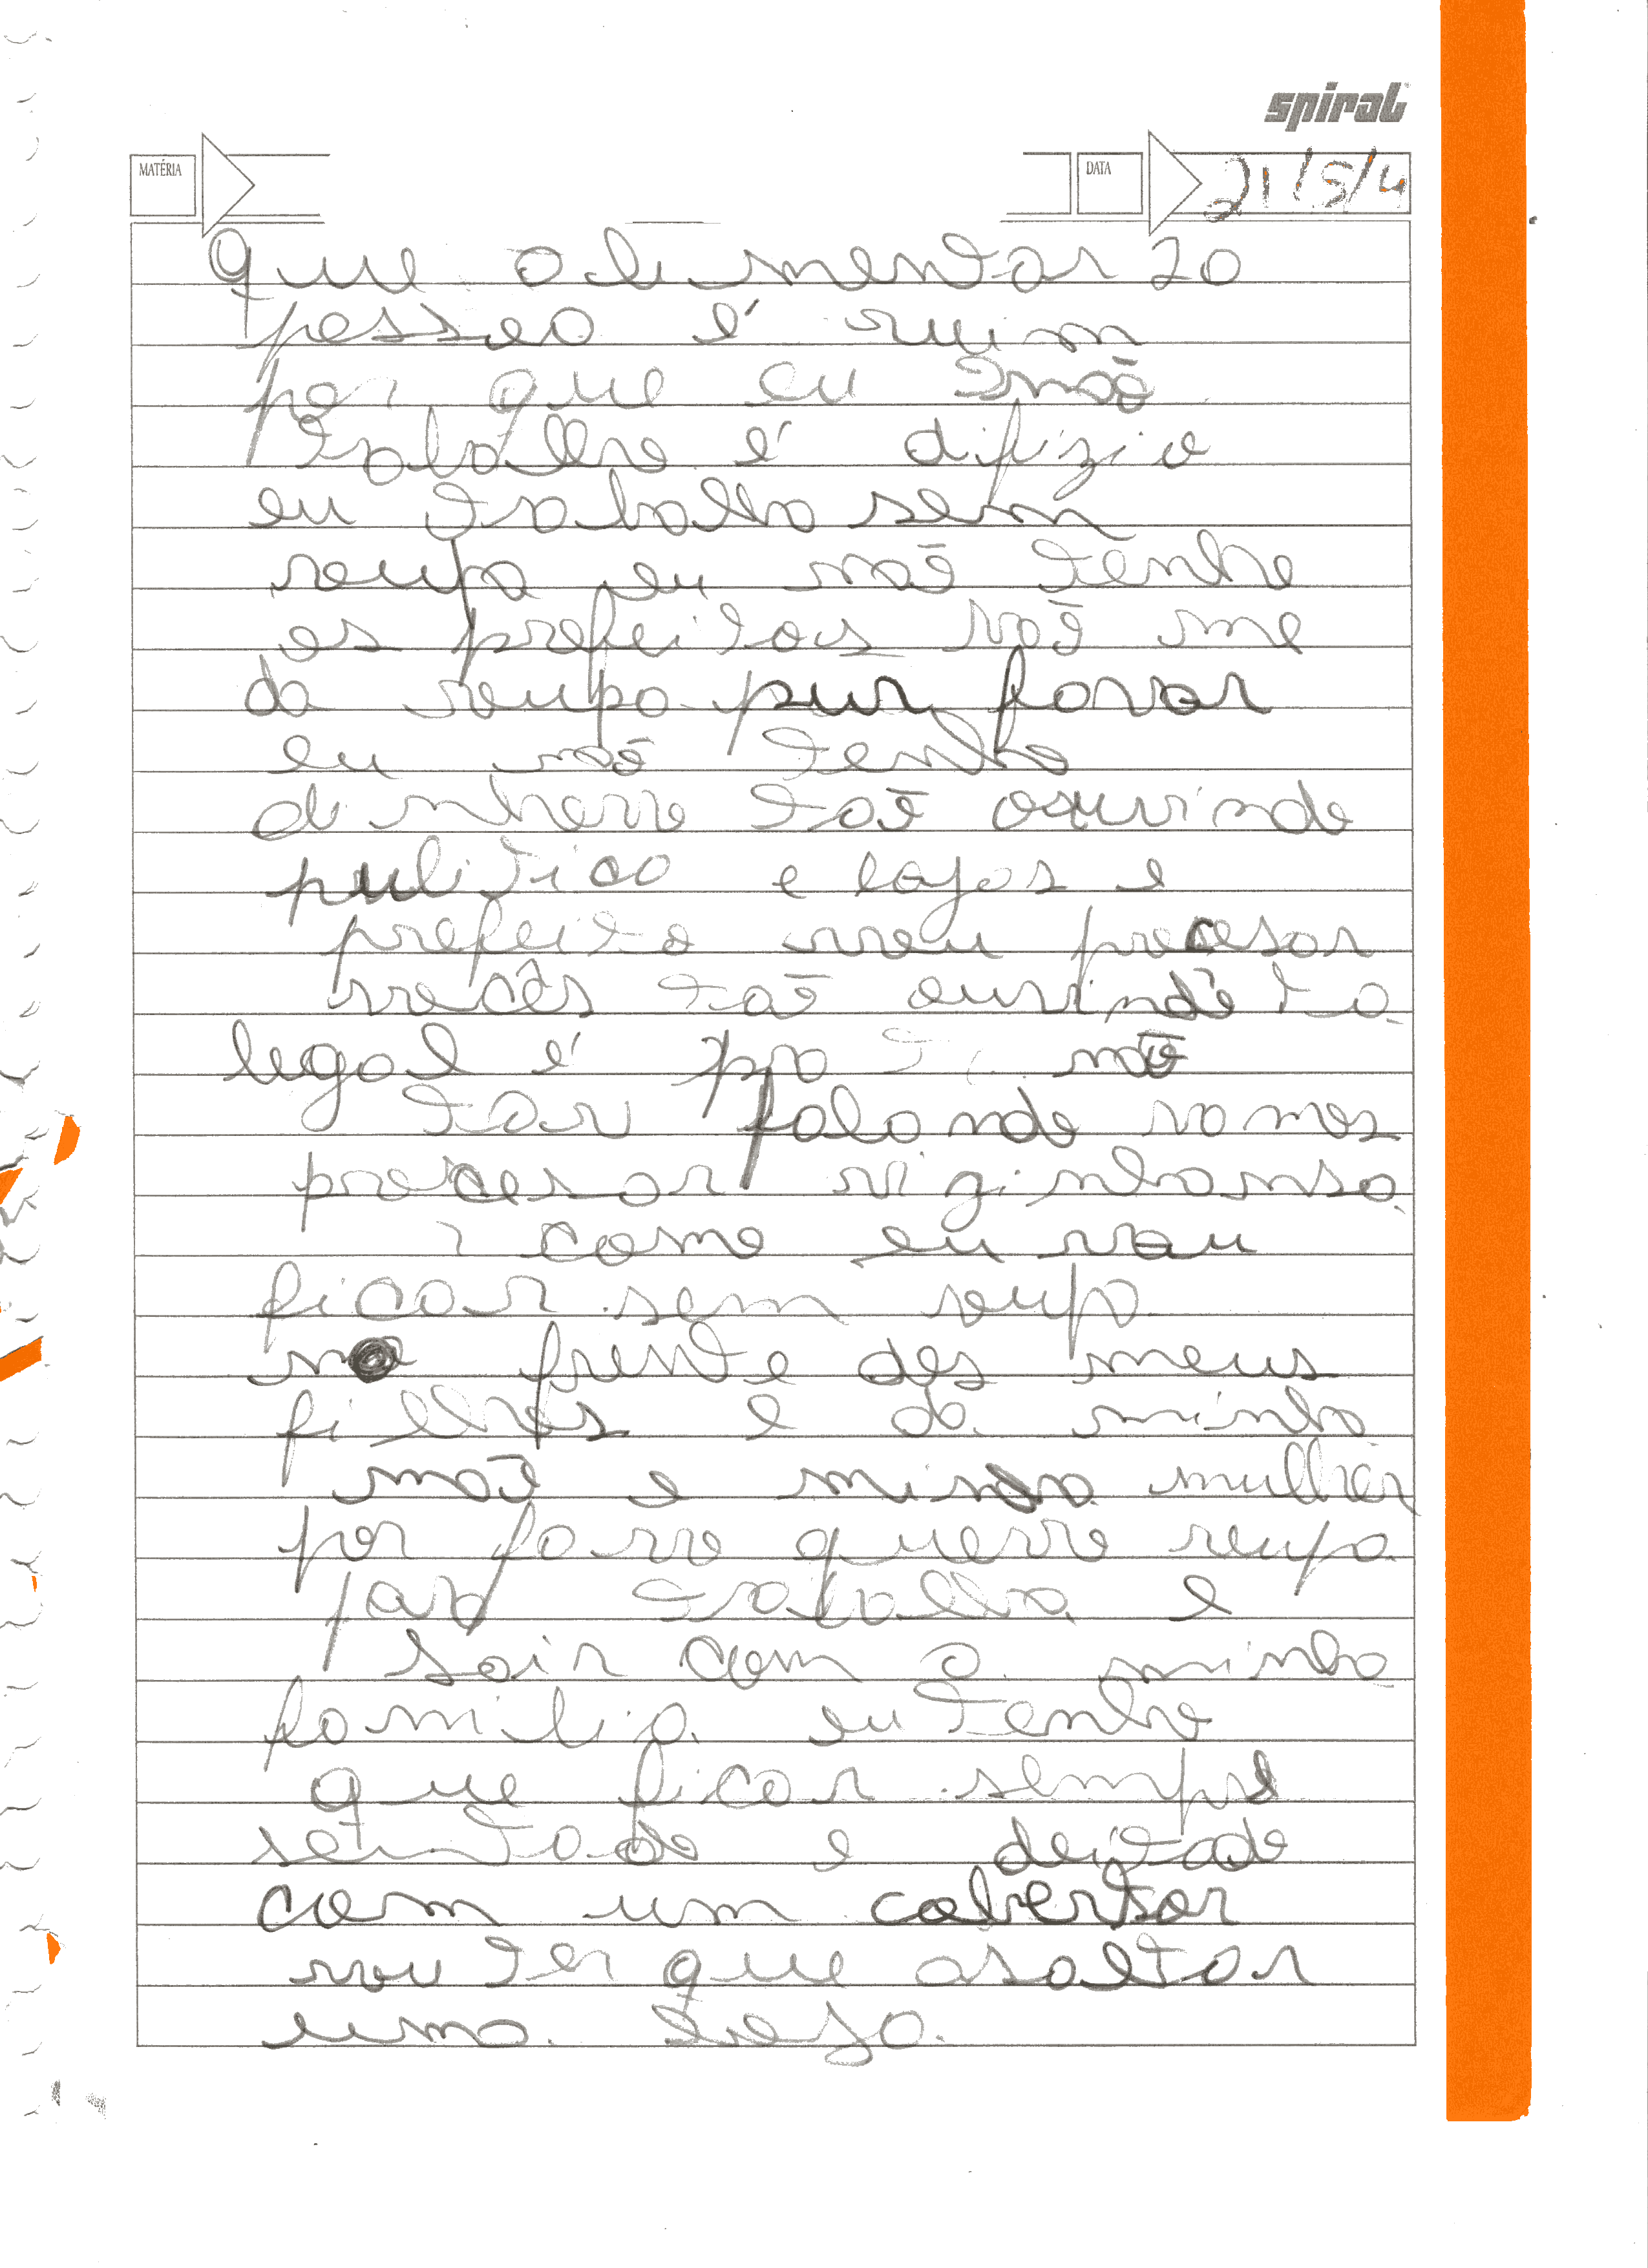 spiral
MATÉRIA
DATA 21/5/4
que alimentar 20
pessoa é ruim
por que eu não
trabalho é difizio
eu trabalho sem
roupa eu não tenho
os prefeitos vão me
da roupa pur favor
eu não tenho
dinherro tão ouvindo
pulitico e
prefeito vou procesar
vocês tão ouvindo ta
legal é pra ti não
tar falando vamos
procesar
como eu vou
ficar sem roupa
na frente dos meus
filhos e da minha
mãe e minha mulher
por favro querro roupa
para trabalha e
sair com a minha
familia eu tenho
que ficar sempre
sentado e deitado
com um cobertor
vou ter que asaltar
uma